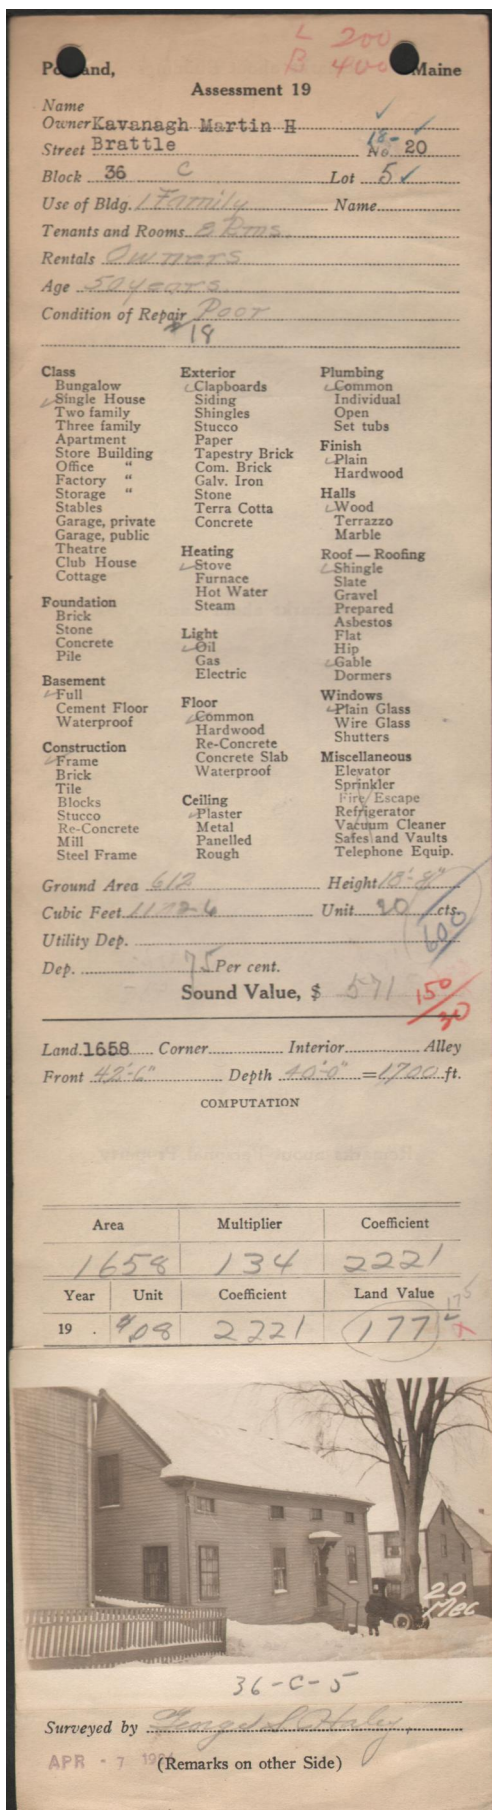 L 200
B 400
Portland, Maine
Assessment 19
Name
Owner Kavanagh Martin H
Street Brattle 18- No. 20
Block 36 C Lot 5
Use of Bldg. 1 Family Name
Tenants and Rooms 8 Rms.
Rentals Owners
Age 50 years.
Condition of Repair Poor
18
Class
Bungalow
Single House
Two family
Three family
Apartment
Store Building
Office "
Factory "
Storage "
Stables
Garage, private
Garage, public
Theatre
Club House
Cottage
Foundation
Brick
Stone
Concrete
Pile
Basement
Full
Cement Floor
Waterproof
Construction
Frame
Brick
Tile
Blocks
Stucco
Re-Concrete
Mill
Steel Frame
Exterior
Clapboards
Siding
Shingles
Stucco
Paper
Tapestry Brick
Com. Brick
Galv. Iron
Stone
Terra Cotta
Concrete
Heating
Stove
Furnace
Hot Water
Steam
Light
Oil
Gas
Electric
Floor
Common
Hardwood
Re-Concrete
Concrete Slab
Waterproof
Ceiling
Plaster
Metal
Panelled
Rough
Plumbing
Common
Individual
Open
Set tubs
Finish
Plain
Hardwood
Halls
Wood
Terrazzo
Marble
Roof — Roofing
Shingle
Slate
Gravel
Prepared
Asbestos
Flat
Hip
Gable
Dormers
Windows
Plain Glass
Wire Glass
Shutters
Miscellaneous
Elevator
Sprinkler
Fire Escape
Refrigerator
Vacuum Cleaner
Safes and Vaults
Telephone Equip.
Ground Area 612 Height 18'-8"
Cubic Feet Unit 20 cts.
600
Utility Dep.
Dep. 75 Per cent.
Sound Value, $ 571
150
30
Land 1658 Corner Interior Alley
Front 42'-6" Depth 40'-0" = 1700 ft.
COMPUTATION
Area Multiplier Coefficient
1658 134 2221
Year Unit Coefficient Land Value
175
19 . $.08 2221 177
20
Mec
36-C-5
Surveyed by George S Haley
APR - 7
(Remarks on other Side)